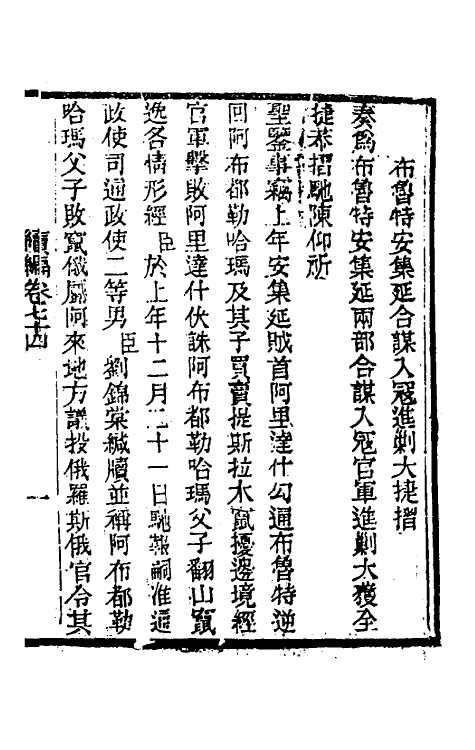 布魯特安集延合謀入寇進剿大捷摺
奏爲布魯特安集延兩部合謀入寇官軍進剿大獲全
捷恭摺馳陳仰祈
聖鑒事竊上年安集延賊首阿里達什勾通布魯特逆
回阿布都勒哈瑪及其子買賣提斯拉木竄擾邊境經
官軍擊敗阿里達什伏誅阿布都勒哈瑪父子翻山竄
逸各情形經臣於上年十二月二十一日馳報嗣准通
政使司通政使二等男臣劉錦棠緘牘並稱阿布都勒
哈瑪父子敗竄俄屬阿來地方議投俄羅斯俄官令其
續編卷七十四
一